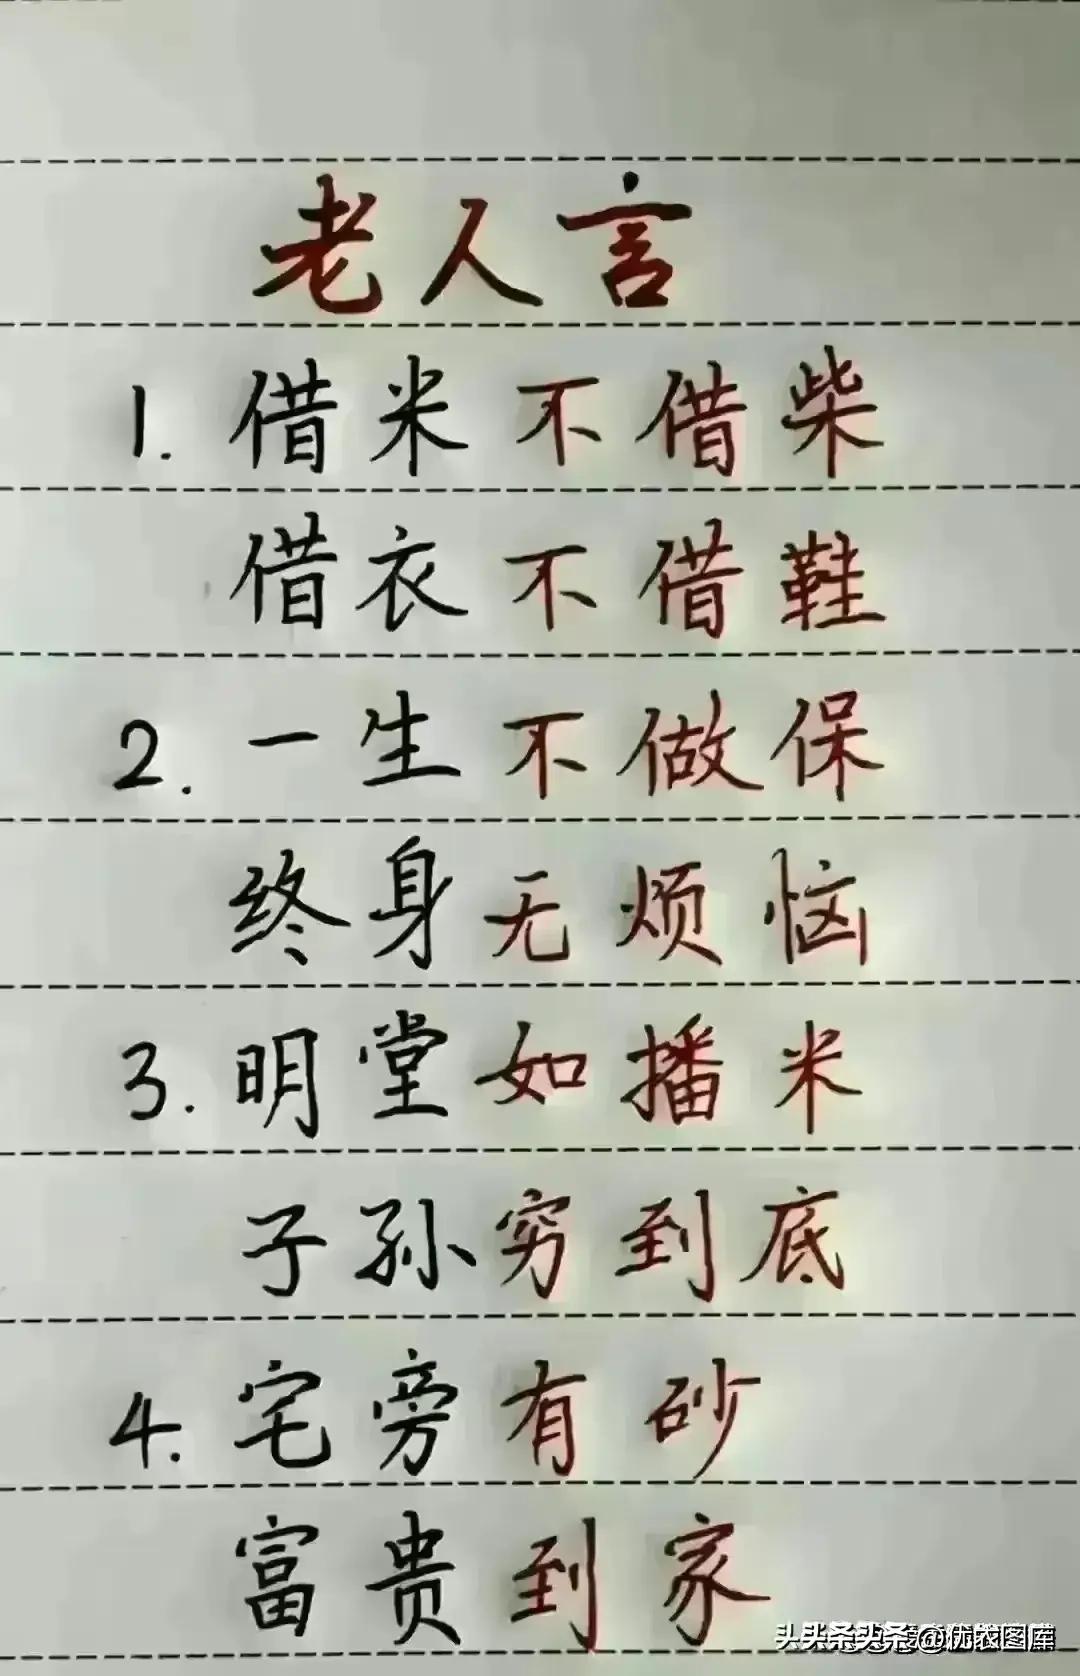 老人言
1. 借米不借柴
借衣不借鞋
2. 一生不做保
终身无烦恼
3. 明堂如播米
子孙穷到底
4. 宅旁有砂
富贵到家
@优农图库